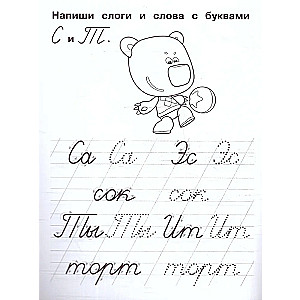 Напиши слоги и слова с буквами
С и Т.
Са Са Эс Эс
сок сок
Ты Ты Ит Ит
торт торт